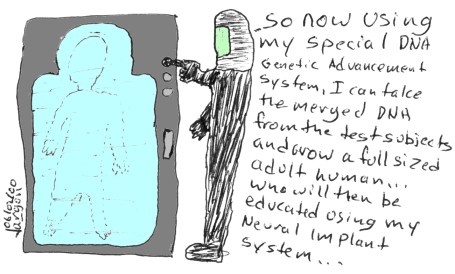 So now using
my special DNA
Genetic Advancement
system, I can take
the merged DNA
from the test subjects
and grow a full sized
adult human...
who will then be
educated using my
Neural Implant
system...